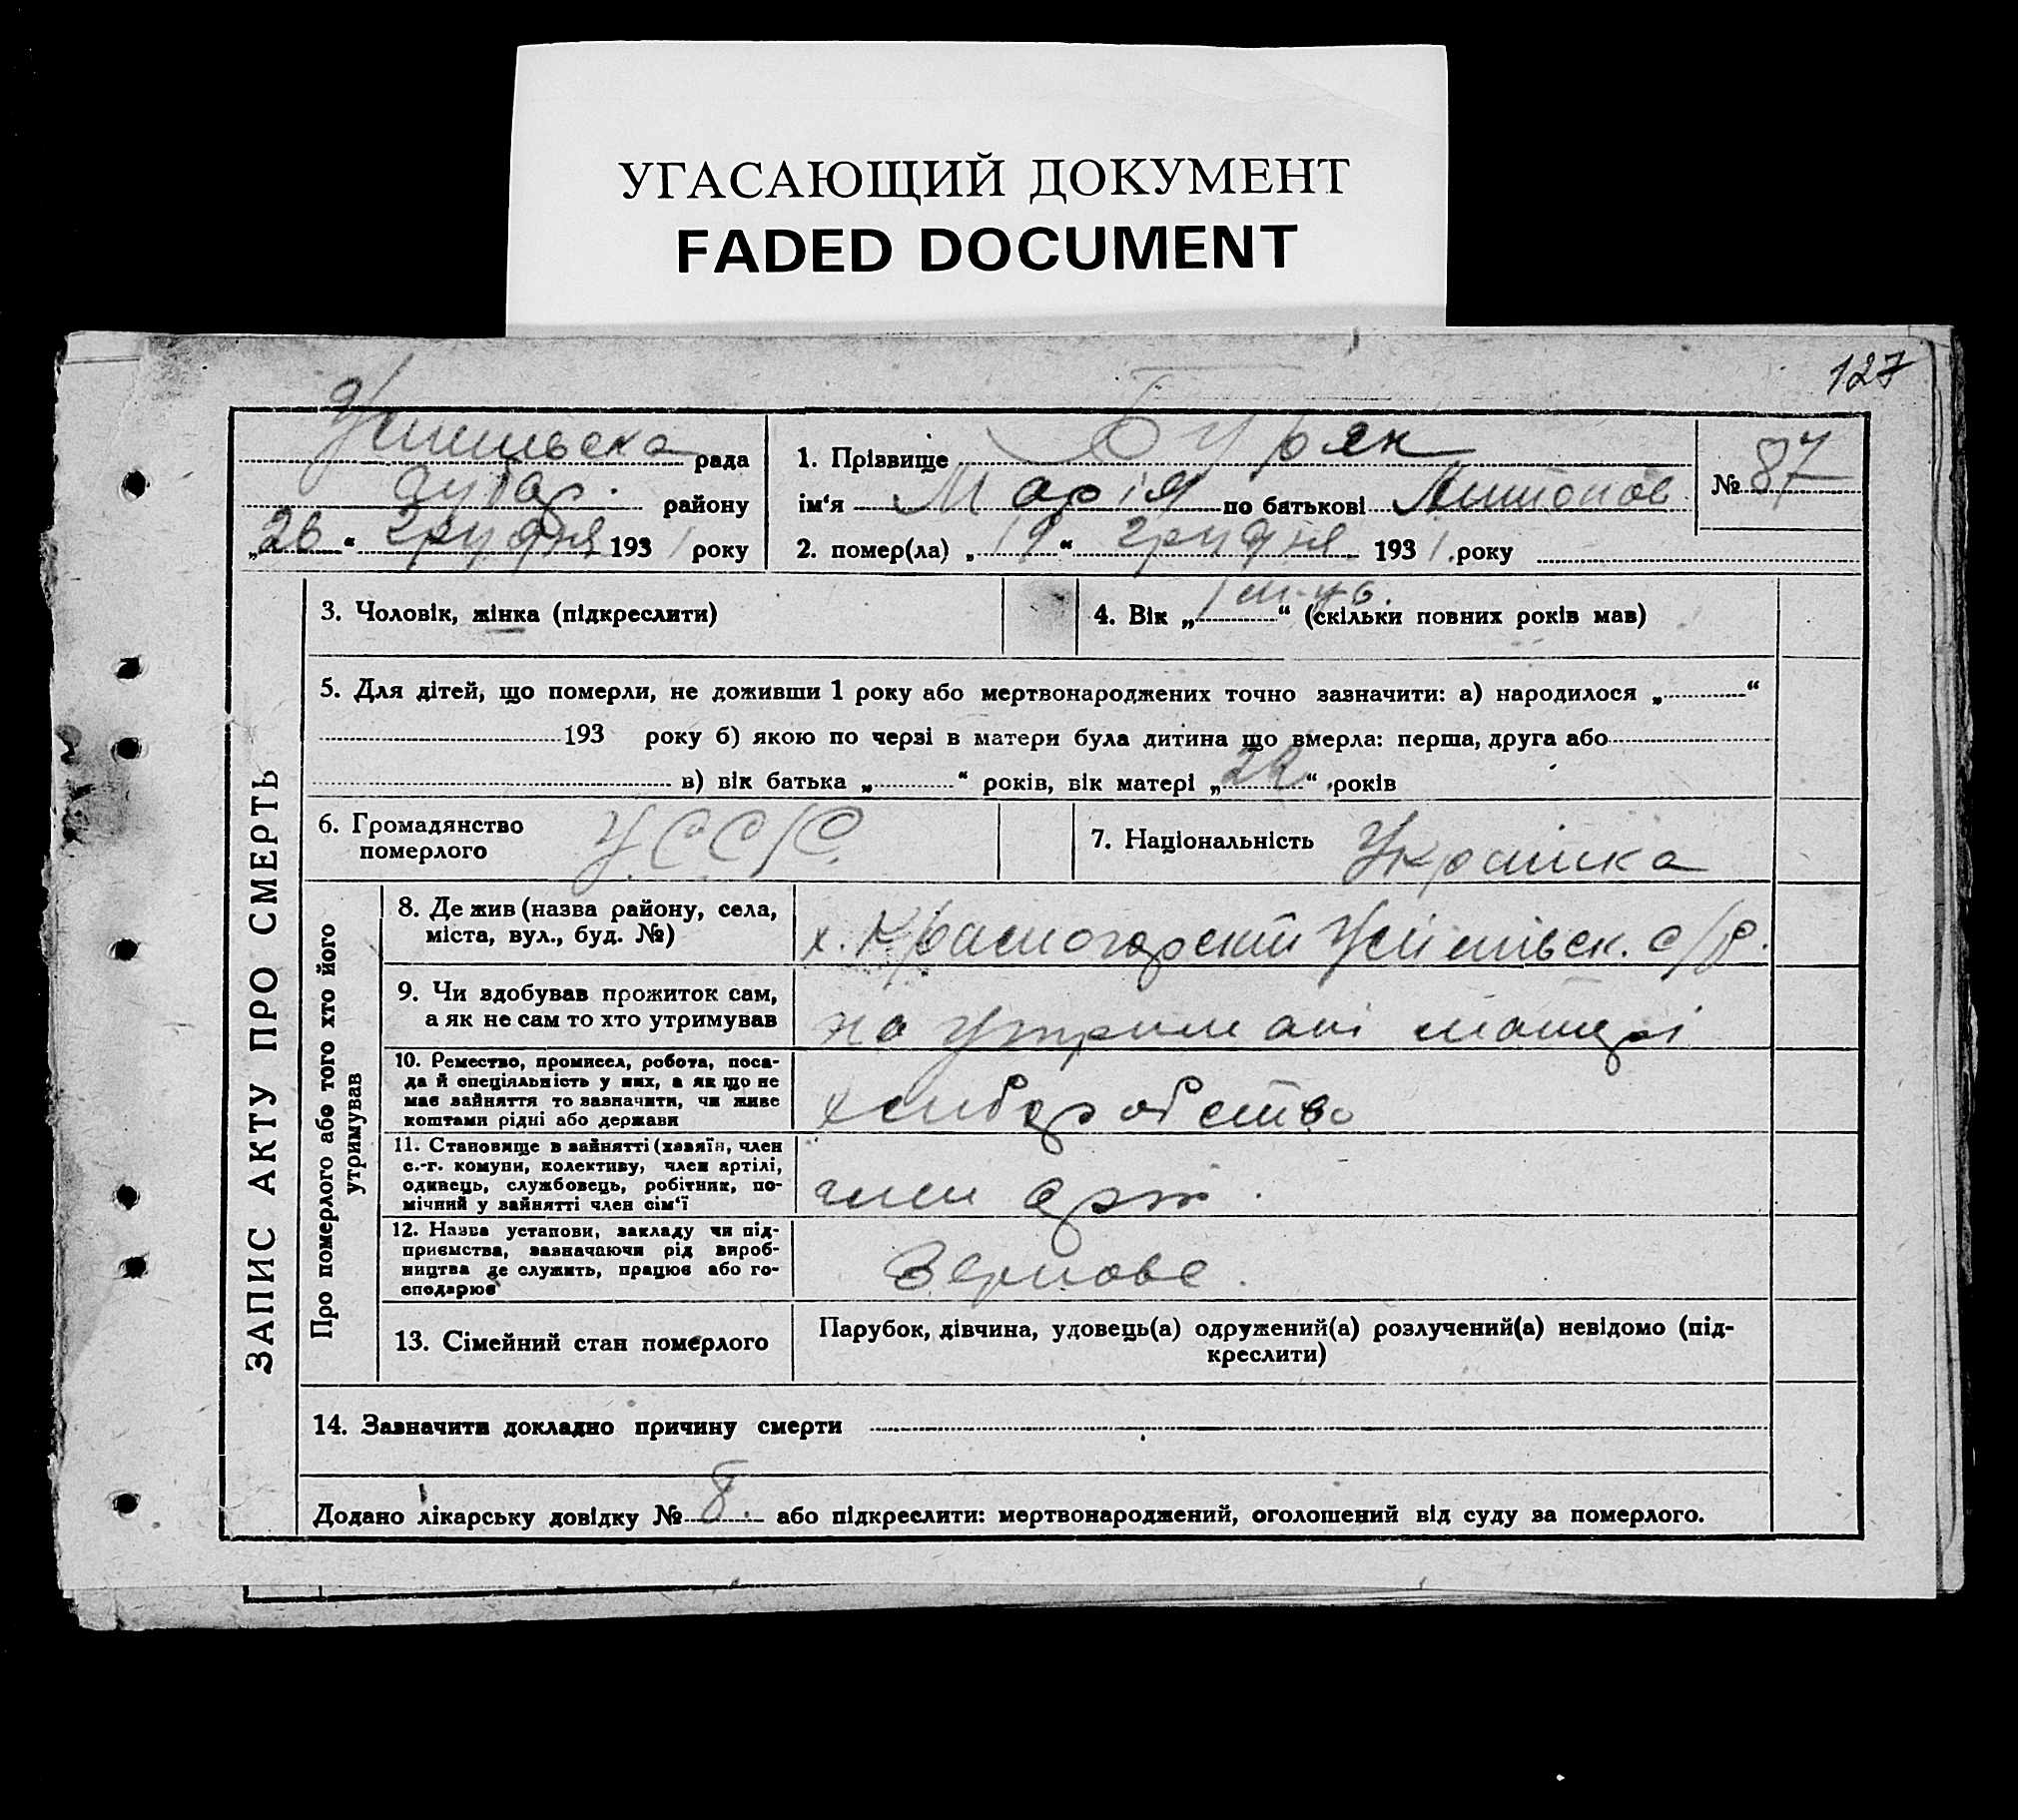 УГАСАЮЩИЙ ДОКУМЕНТ
FADED DOCUMENT
127
рада
району
„26“ грудня 1931 року
1. Прізвище Буряк
ім‘я Марія по батькові Антонов
№ 87
2. помер(ла) „19“ грудня 1931. року
ЗАПИС АКТУ ПРО СМЕРТЬ
3. Чоловік, жінка (підкреслити)
4. Вік „1 “ (скільки повних років мав)
5. Для дітей, що померли, не доживши 1 року або мертвонароджених точно зазначити: а) народилося „ “
193 року б) якою по черзі в матери була дитина що вмерла: перша, друга або
в) вік батька „ “ років, вік матері „ “ років
6. Громадянство
померлого
У.С.С.Р.
7. Національність Українка
Про померлого або того хто його
утримував
8. Де жив (назва району, села,
міста, вул., буд. №)
х. Красногорский с/р.
9. Чи здобував прожиток сам,
а як не сам то хто утримував
на утримані матері
10. Ремество, промисел, робота, поса-
да й спеціяльність у них, а як що не
має зайняття то зазначити, чи живе
коштами рідні або держави
хліборобство
11. Становище в зайнятті (хазяїн, член
с.-г. комуни, колективу, член артілі,
одинець, службовець, робітник, по-
мічний у зайнятті член сім‘ї
член арт.
12. Назва установи, закладу чи під-
приємства, зазначаючи рід вироб-
ництва де служить, працює або го-
сподарює
Зернове.
13. Сімейний стан померлого
Парубок, дівчина, удовець(а) одружений(а) розлучений(а) невідомо (під-
креслити)
14. Зазначити докладно причину смерти
Додано лікарську довідку № 8. або підкреслити: мертвонароджений, оголошений від суду за померлого.